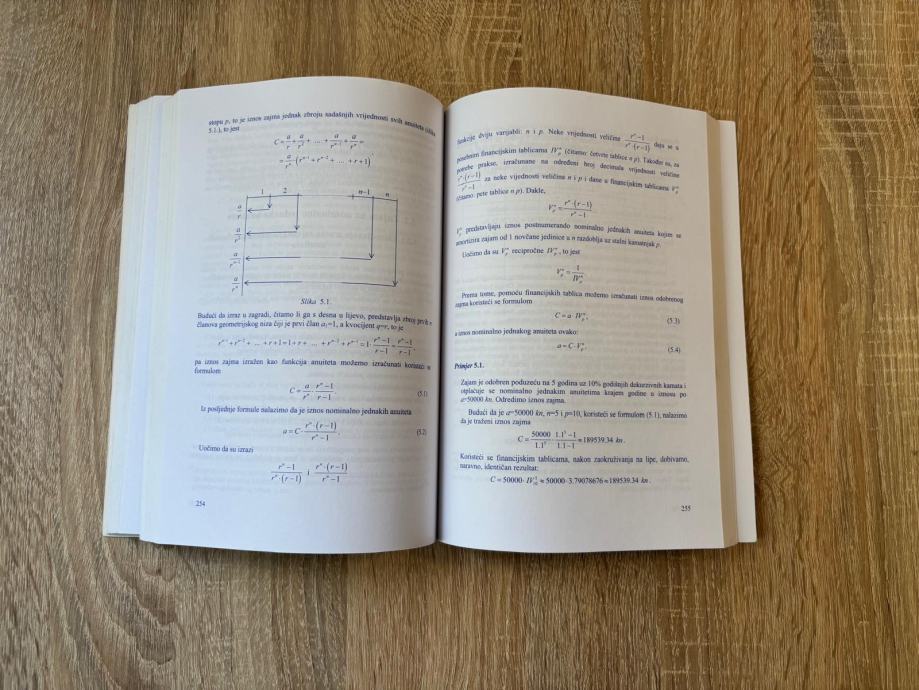 stopu p, to je iznos zajma jednak zbroju sadašnjih vrijednosti svih anuiteta (slika
5.1.), to jest
C = a/r + a/r² + ... + a/rⁿ⁻¹ + a/rⁿ =
= a/rⁿ · (rⁿ⁻¹ + rⁿ⁻² + ... + r + 1)
1 2 n−1 n
a/r
a/r²
a/rⁿ⁻¹
a/rⁿ
Slika 5.1.
Budući da izraz u zagradi, čitamo li ga s desna u lijevo, predstavlja zbroj prvih n
članova geometrijskog niza čiji je prvi član a₁=1, a kvocijent q=r, to je
rⁿ⁻¹ + rⁿ⁻² + ... + r + 1 = 1 + r + ... + rⁿ⁻² + rⁿ⁻¹ = 1 · (rⁿ−1)/(r−1) = (rⁿ−1)/(r−1),
pa iznos zajma izražen kao funkcija anuiteta možemo izračunati koristeći se
formulom
C = a/rⁿ · (rⁿ−1)/(r−1). (5.1)
Iz posljednje formule nalazimo da je iznos nominalno jednakih anuiteta
a = C · rⁿ·(r−1)/(rⁿ−1). (5.2)
Uočimo da su izrazi
(rⁿ−1)/(rⁿ·(r−1)) i rⁿ·(r−1)/(rⁿ−1)
254
funkcije dviju varijabli: n i p. Neke vrijednosti veličine (rⁿ−1)/(rⁿ·(r−1)) daju se u
posebnim financijskim tablicama IVₚⁿ (čitamo: četvrte tablice n p). Također su, za
potrebe prakse, izračunane na određeni broj decimala vrijednosti veličine
rⁿ·(r−1)/(rⁿ−1) za neke vijednosti veličina n i p i dane u financijskim tablicama Vₚⁿ
(čitamo: pete tablice n p). Dakle,
Vₚⁿ = rⁿ·(r−1)/(rⁿ−1)
Vₚⁿ predstavljaju iznos postnumerando nominalno jednakih anuiteta kojim se
amortizira zajam od 1 novčane jedinice u n razdoblja uz stalni kamatnjak p.
Uočimo da su Vₚⁿ recipročne IVₚⁿ, to jest
Vₚⁿ = 1/IVₚⁿ
Prema tome, pomoću financijskih tablica možemo izračunati iznos odobrenog
zajma koristeći se formulom
C = a · IVₚⁿ, (5.3)
a iznos nominalno jednakog anuiteta ovako:
a = C · Vₚⁿ. (5.4)
Primjer 5.1.
Zajam je odobren poduzeću na 5 godina uz 10% godišnjih dekurzivnih kamata i
otplaćuje se nominalno jednakim anuitetima krajem godine u iznosu po
a=50000 kn. Odredimo iznos zajma.
Budući da je a=50000 kn, n=5 i p=10, koristeći se formulom (5.1), nalazimo
da je traženi iznos zajma
C = 50000/1.1⁵ · (1.1⁵−1)/(1.1−1) ≈ 189539.34 kn.
Koristeći se financijskim tablicama, nakon zaokruživanja na lipe, dobivamo,
naravno, identičan rezultat:
C = 50000 · IV₁₀⁵ ≈ 50000 · 3.79078676 ≈ 189539.34 kn.
255